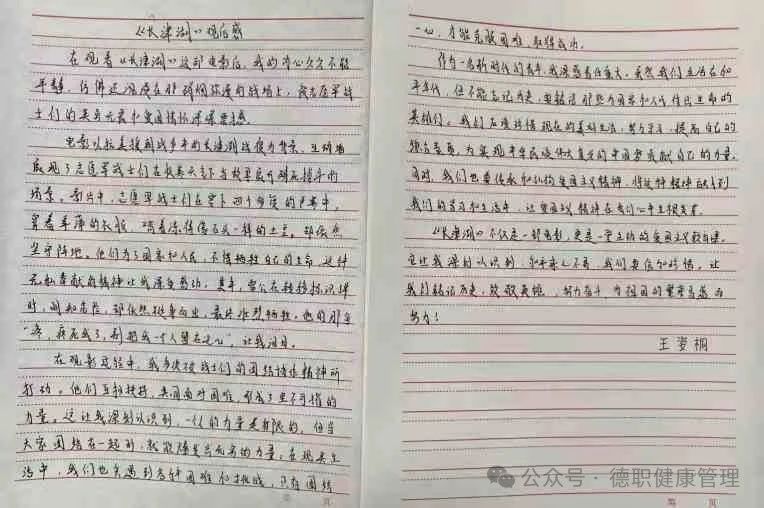 《长津湖》观后感
在观看《长津湖》这部电影后,我的内心久久不能
平静,仿佛还沉浸在那硝烟弥漫的战场上,志愿军战
士们的英勇无畏和爱国情怀深深震撼
电影以抗美援朝战争中的长津湖战役为背景,生动地
展现了志愿军战士们在极其恶劣下与敌军展开殊死搏斗的
场景。影片中,志愿军战士们在零下四十多度的严寒中,
穿着单薄的衣服,啃着冻得像石头一样的土豆。却依然
坚守阵地。他们为了国家和人民,不惜牺牲自己的生命,这种
无私奉献的精神让我深受感动。其中,雷公在转移标识弹
时,明知危险,却依然挺身而出,最终壮烈牺牲。他的那句
“疼,疼死我了,别把我一个人留在这儿”,让我泪目。
在观影过程中,我多次被战士们的团结协作精神所
打动。他们互相扶持,共同面对困难,形成了坚不可摧的
力量。这让我深刻认识到,一个人的力量是有限的,但当
大家团结在一起时,就能爆发出无穷的力量,在现实生
活中,我们也会遇到各种困难和挑战,只有团结
一心,才能克服困难,取得成功。
作为一名新时代的青年,我深感责任重大。虽然我们生活在和
平年代,但不能忘记历史,要铭记那些为国家和人民付出生命的
英雄们。我们应该珍惜现在的美好生活,努力学习,提高自己的
综合素质,为实现中华民族伟大复兴的中国梦贡献自己的力量。
同时,我们也要传承和弘扬爱国主义精神,将这种精神融入到
我们的学习和生活中,让爱国主义精神在我们心中生根发芽。
《长津湖》不仅是一部电影,更是一堂生动的爱国主义教育课。
它让我深刻认识到,和平来之不易,我们要倍加珍惜。让
我们铭记历史,致敬英雄,努力奋斗,为祖国的繁荣昌盛而
努力!
王姿桐
第 页
第 页
公众号·德职健康管理